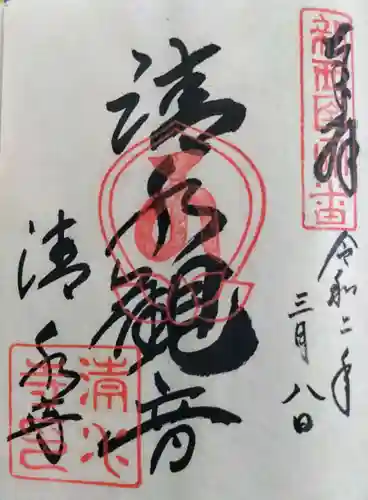 奉拝
令和二年
三月八日
清水観音
清水寺
清水
寺印